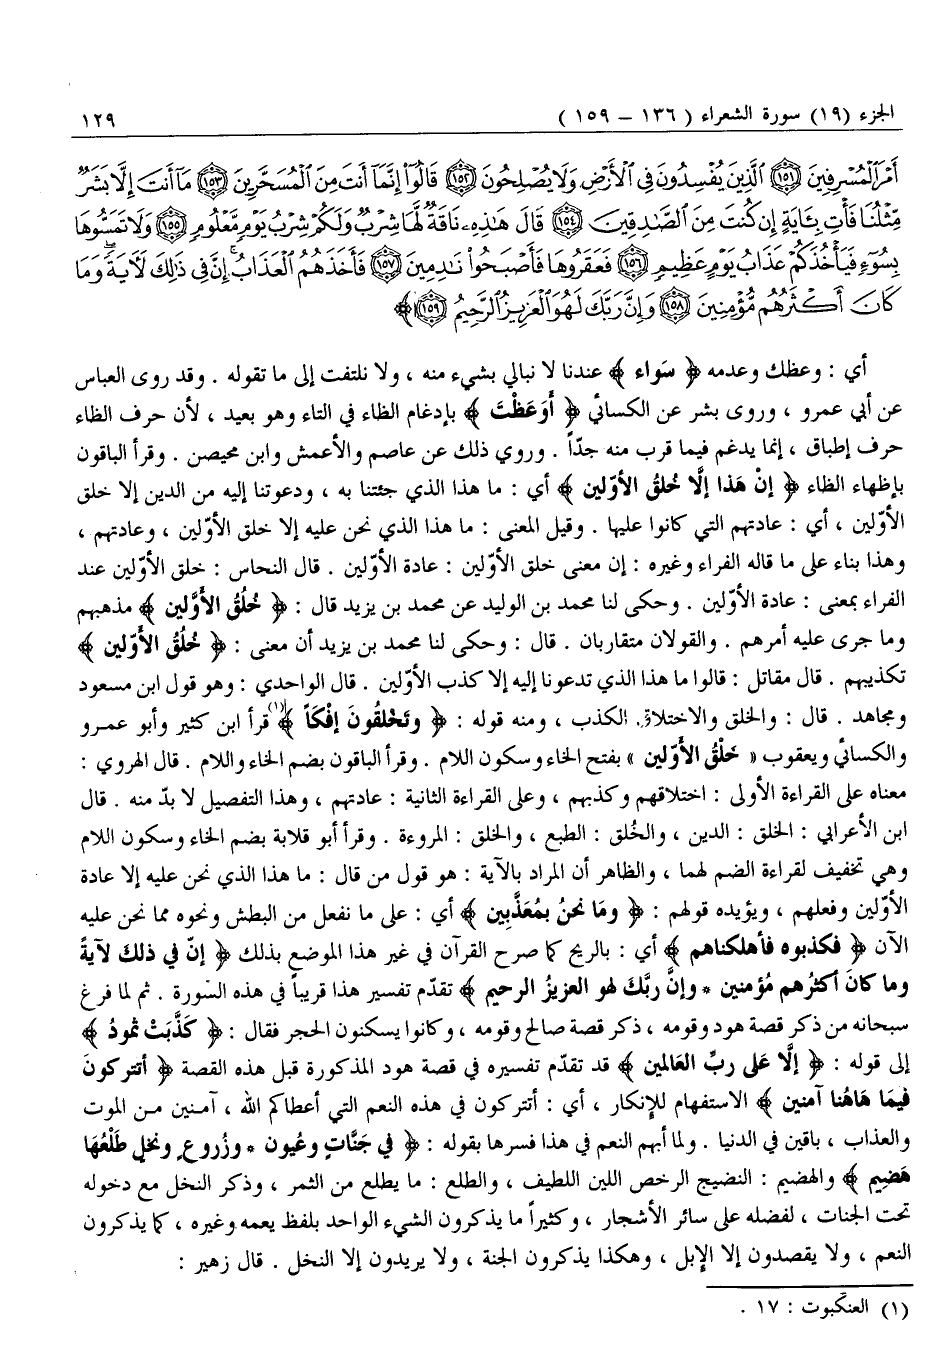 الجزء (١٩) سورة الشعراء ( ١٣٦ - ١٥٩ ) ١٢٩
أَمْرَ ٱلْمُسْرِفِينَ ﴿١٥١﴾ ٱلَّذِينَ يُفْسِدُونَ فِى ٱلْأَرْضِ وَلَا يُصْلِحُونَ ﴿١٥٢﴾ قَالُوٓا۟ إِنَّمَآ أَنتَ مِنَ ٱلْمُسَحَّرِينَ ﴿١٥٣﴾ مَآ أَنتَ إِلَّا بَشَرٌ
مِّثْلُنَا فَأْتِ بِـَٔايَةٍ إِن كُنتَ مِنَ ٱلصَّـٰدِقِينَ ﴿١٥٤﴾ قَالَ هَـٰذِهِۦ نَاقَةٌ لَّهَا شِرْبٌ وَلَكُمْ شِرْبُ يَوْمٍ مَّعْلُومٍ ﴿١٥٥﴾ وَلَا تَمَسُّوهَا
بِسُوٓءٍ فَيَأْخُذَكُمْ عَذَابُ يَوْمٍ عَظِيمٍ ﴿١٥٦﴾ فَعَقَرُوهَا فَأَصْبَحُوا۟ نَـٰدِمِينَ ﴿١٥٧﴾ فَأَخَذَهُمُ ٱلْعَذَابُ ۗ إِنَّ فِى ذَٰلِكَ لَـَٔايَةً ۖ وَمَا
كَانَ أَكْثَرُهُم مُّؤْمِنِينَ ﴿١٥٨﴾ وَإِنَّ رَبَّكَ لَهُوَ ٱلْعَزِيزُ ٱلرَّحِيمُ ﴿١٥٩﴾ ﴾
أي : وعظك وعدمه ﴿ سَواء ﴾ عندنا لا نبالي بشيء منه ، ولا نلتفت إلى ما تقوله . وقد روى العباس
عن أبي عمرو ، وروى بشر عن الكسائي ﴿ أَوَعَظْتَ ﴾ بإدغام الظاء في التاء وهو بعيد ، لأن حرف الظاء
حرف إطباق ، إنما يدغم فيما قرب منه جدّاً . وروي ذلك عن عاصم والأعمش وابن محيصن . وقرأ الباقون
بإظهار الظاء ﴿ إنْ هَذا إلَّا خُلقُ الأوّلين ﴾ أي : ما هذا الذي جئتنا به ، ودعوتنا إليه من الدين إلا خلق
الأوّلين ، أي : عادتهم التي كانوا عليها . وقيل المعنى : ما هذا الذي نحن عليه إلا خلق الأوّلين ، وعادتهم ،
وهذا بناء على ما قاله الفراء وغيره : إن معنى خلق الأوّلين : عادة الأوّلين . قال النحاس : خلق الأوّلين عند
الفراء بمعنى : عادة الأوّلين . وحكى لنا محمد بن الوليد عن محمد بن يزيد قال : ﴿ خُلُقُ الأَوَّلين ﴾ مذهبهم
وما جرى عليه أمرهم . والقولان متقاربان . قال : وحكى لنا محمد بن يزيد أن معنى : ﴿ خُلُقُ الأَوّلين ﴾
تكذيبهم . قال مقاتل : قالوا ما هذا الذي تدعونا إليه إلا كذب الأوّلين . قال الواحدي : وهو قول ابن مسعود
ومجاهد . قال : والخلق والاختلاق الكذب ، ومنه قوله : ﴿ وتَخلقُونَ إفْكَاً ﴾(١) قرأ ابن كثير وأبو عمرو
والكسائي ويعقوب « خَلْقُ الأَوّلين » بفتح الخاء وسكون اللام . وقرأ الباقون بضم الخاء واللام . قال الهروي :
معناه على القراءة الأولى : اختلاقهم وكذبهم ، وعلى القراءة الثانية : عادتهم ، وهذا التفصيل لا بدّ منه . قال
ابن الأعرابي : الخلق : الدين ، والخُلق : الطبع ، والخلق : المروءة . وقرأ أبو قلابة بضم الخاء وسكون اللام
وهي تخفيف لقراءة الضم لهما ، والظاهر أن المراد بالآية : هو قول من قال : ما هذا الذي نحن عليه إلا عادة
الأوّلين وفعلهم ، ويؤيده قولهم : ﴿ ومَا نحنُ بمُعَذَّبِين ﴾ أي : على ما نفعل من البطش ونحوه مما نحن عليه
الآن ﴿ فكذبوه فأهلكناهم ﴾ أي : بالريح كما صرح القرآن في غير هذا الموضع بذلك ﴿ إنّ في ذلك لآيةً
وما كانَ أكثرُهم مُؤمنين * وإنَّ ربَّكَ لهو العزيزُ الرحيم ﴾ تقدّم تفسير هذا قريباً في هذه السورة . ثم لما فرغ
سبحانه من ذكر قصة هود وقومه ، ذكر قصة صالح وقومه ، وكانوا يسكنون الحجر فقال : ﴿ كَذَّبَتْ ثمودُ ﴾
إلى قوله : ﴿ إلَّا عَلى ربِّ العَالمين ﴾ قد تقدّم تفسيره في قصة هود المذكورة قبل هذه القصة ﴿ أتتركونَ
فيمَا هَاهُنا آمنين ﴾ الاستفهام للإنكار ، أي : أتتركون في هذه النعم التي أعطاكم الله ، آمنين من الموت
والعذاب ، باقين في الدنيا . ولما أبهم النعم في هذا فسرها بقوله : ﴿ في جَنَّاتٍ وعُيون * وزُروعٍ ونخلٍ طَلْعُهَا
هَضيم ﴾ والهضيم : النضيج الرخص اللين اللطيف ، والطلع : ما يطلع من الثمر ، وذكر النخل مع دخوله
تحت الجنات ، لفضله على سائر الأشجار ، وكثيراً ما يذكرون الشيء الواحد بلفظ يعمه وغيره ، كما يذكرون
النعم ، ولا يقصدون إلا الإبل ، وهكذا يذكرون الجنة ، ولا يريدون إلا النخل . قال زهير :
(١) العنكبوت : ١٧ .